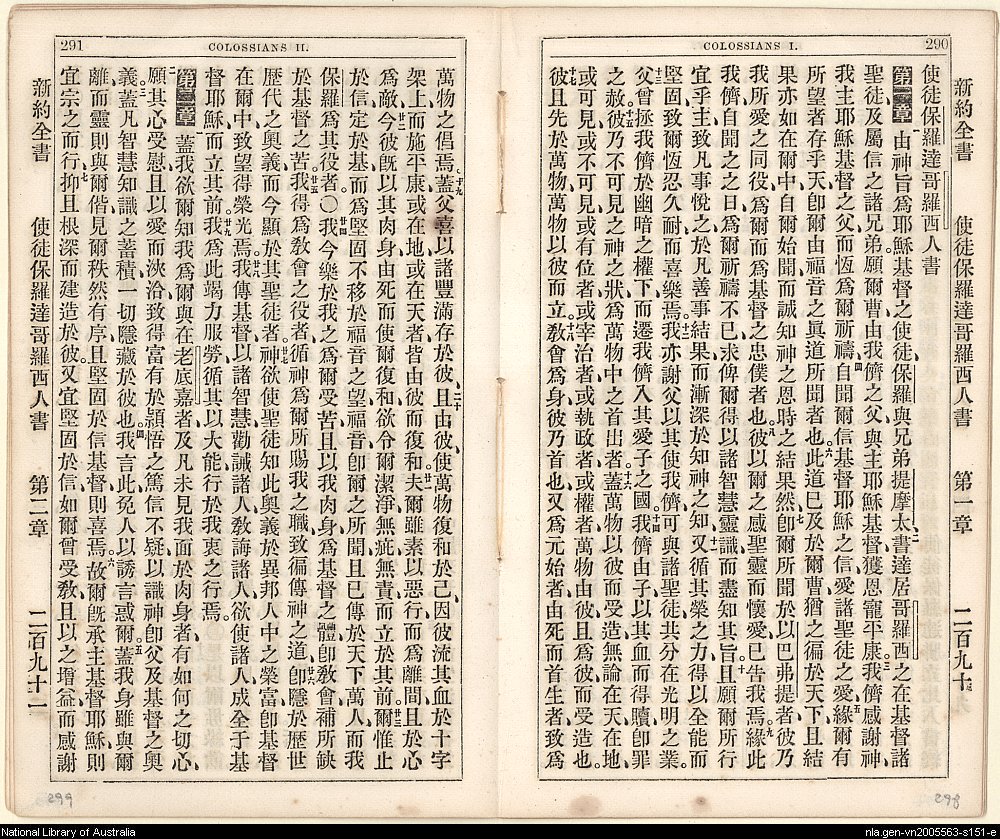 290
COLOSSIANS I.
新約全書 使徒保羅達哥羅西人書 第一章 二百九十
使徒保羅達哥羅西人書
第一章 由神旨爲耶穌基督之使徒保羅與兄弟提摩太、書達居哥羅西之在基督諸
聖徒及屬信之諸兄弟、願爾曹由我儕之父與主耶穌基督獲恩寵平康、我儕感謝神
我主耶穌基督之父、而恆爲爾祈禱、自聞爾信基督耶穌之信、愛諸聖徒之愛、緣爾有
所望者存乎天、卽爾由福音之眞道所聞者也、此道已及於爾曹、猶之徧於天下、且結
果亦如在爾中、自爾始聞而誠知神之恩時之結果然、卽爾所聞於以巴弗提者、彼乃
我所愛之同役、爲爾而爲基督之忠僕者也、彼以爾之感聖靈而懷愛、已告我焉、緣此
我儕自聞之之日、爲爾祈禱不已、求俾爾得以諸智慧靈識而盡知其旨、且願爾所行
宜乎主、致凡事悅之、於凡善事結果、而漸深於知神之知、又循其榮之力、得以全能而
堅固、致爾恆忍久耐而喜樂焉、我亦謝父、以其使我儕可與諸聖徒共分在光明之業、
父曾拯我儕於幽暗之權下、而遷我儕入其愛子之國、我儕由子以其血而得贖、卽罪
之赦、彼乃不可見之神之狀、爲萬物中之首出者、蓋萬物以彼而受造、無論在天在地、
或可見、或不可見、或有位者、或宰治者、或執政者、或權者、萬物由彼且爲彼而受造也、
彼且先於萬物、萬物以彼而立、敎會爲身、彼乃首也、又爲元始者、由死而首生者、致爲
291
COLOSSIANS II.
萬物之倡焉、蓋父喜以諸豐滿存於彼、且由彼使萬物復和於己、因彼流其血於十字
架上而施平康、或在地、或在天者、皆由彼而復和、夫爾雖素以惡行而爲離間、且於心
爲敵、今彼旣以其肉身由死而使爾復和、欲令爾潔淨、無疵無責而立於其前、爾惟止
於信、定於基、而爲堅固、不移於福音之望、福音卽爾之所聞、且已傳於天下萬人、而我
保羅爲其役者、〇我今樂於我之爲爾受苦、且以我肉身爲基督之體卽敎會補所缺
於基督之苦、我得爲敎會之役者、循神爲爾所賜我之職、致徧傳神之道、卽隱於歷世
歷代之奧義、而今顯於其聖徒者、神欲使聖徒知此奧義於異邦人中之榮富、卽基督
在爾中、致望得榮光焉、我傳基督、以諸智慧勸誡諸人、敎誨諸人、欲使諸人成全于基
督耶穌而立其前、我爲此竭力服勞、循其以大能行於我衷之行焉、
第二章 蓋我欲爾知我爲爾與在老底嘉者及凡未見我面於肉身者、有如何之切心、
願其心受慰、且以愛而浹洽、致得富有於穎悟之篤信不疑、以識神卽父及基督之奧
義、蓋凡智慧知識之蓄積、一切隱藏於彼也、我言此、免人以誘言惑爾、蓋我身雖與爾
離、而靈則與爾偕、見爾秩然有序、且堅固於信基督則喜焉、故爾旣承主基督耶穌、則
宜宗之而行、抑且根深而建造於彼、又宜堅固於信、如爾曾受敎、且以之增益而感謝
新約全書 使徒保羅達哥羅西人書 第二章 二百九十一
299
298
National Library of Australia
nla.gen-vn2005563-s151-e